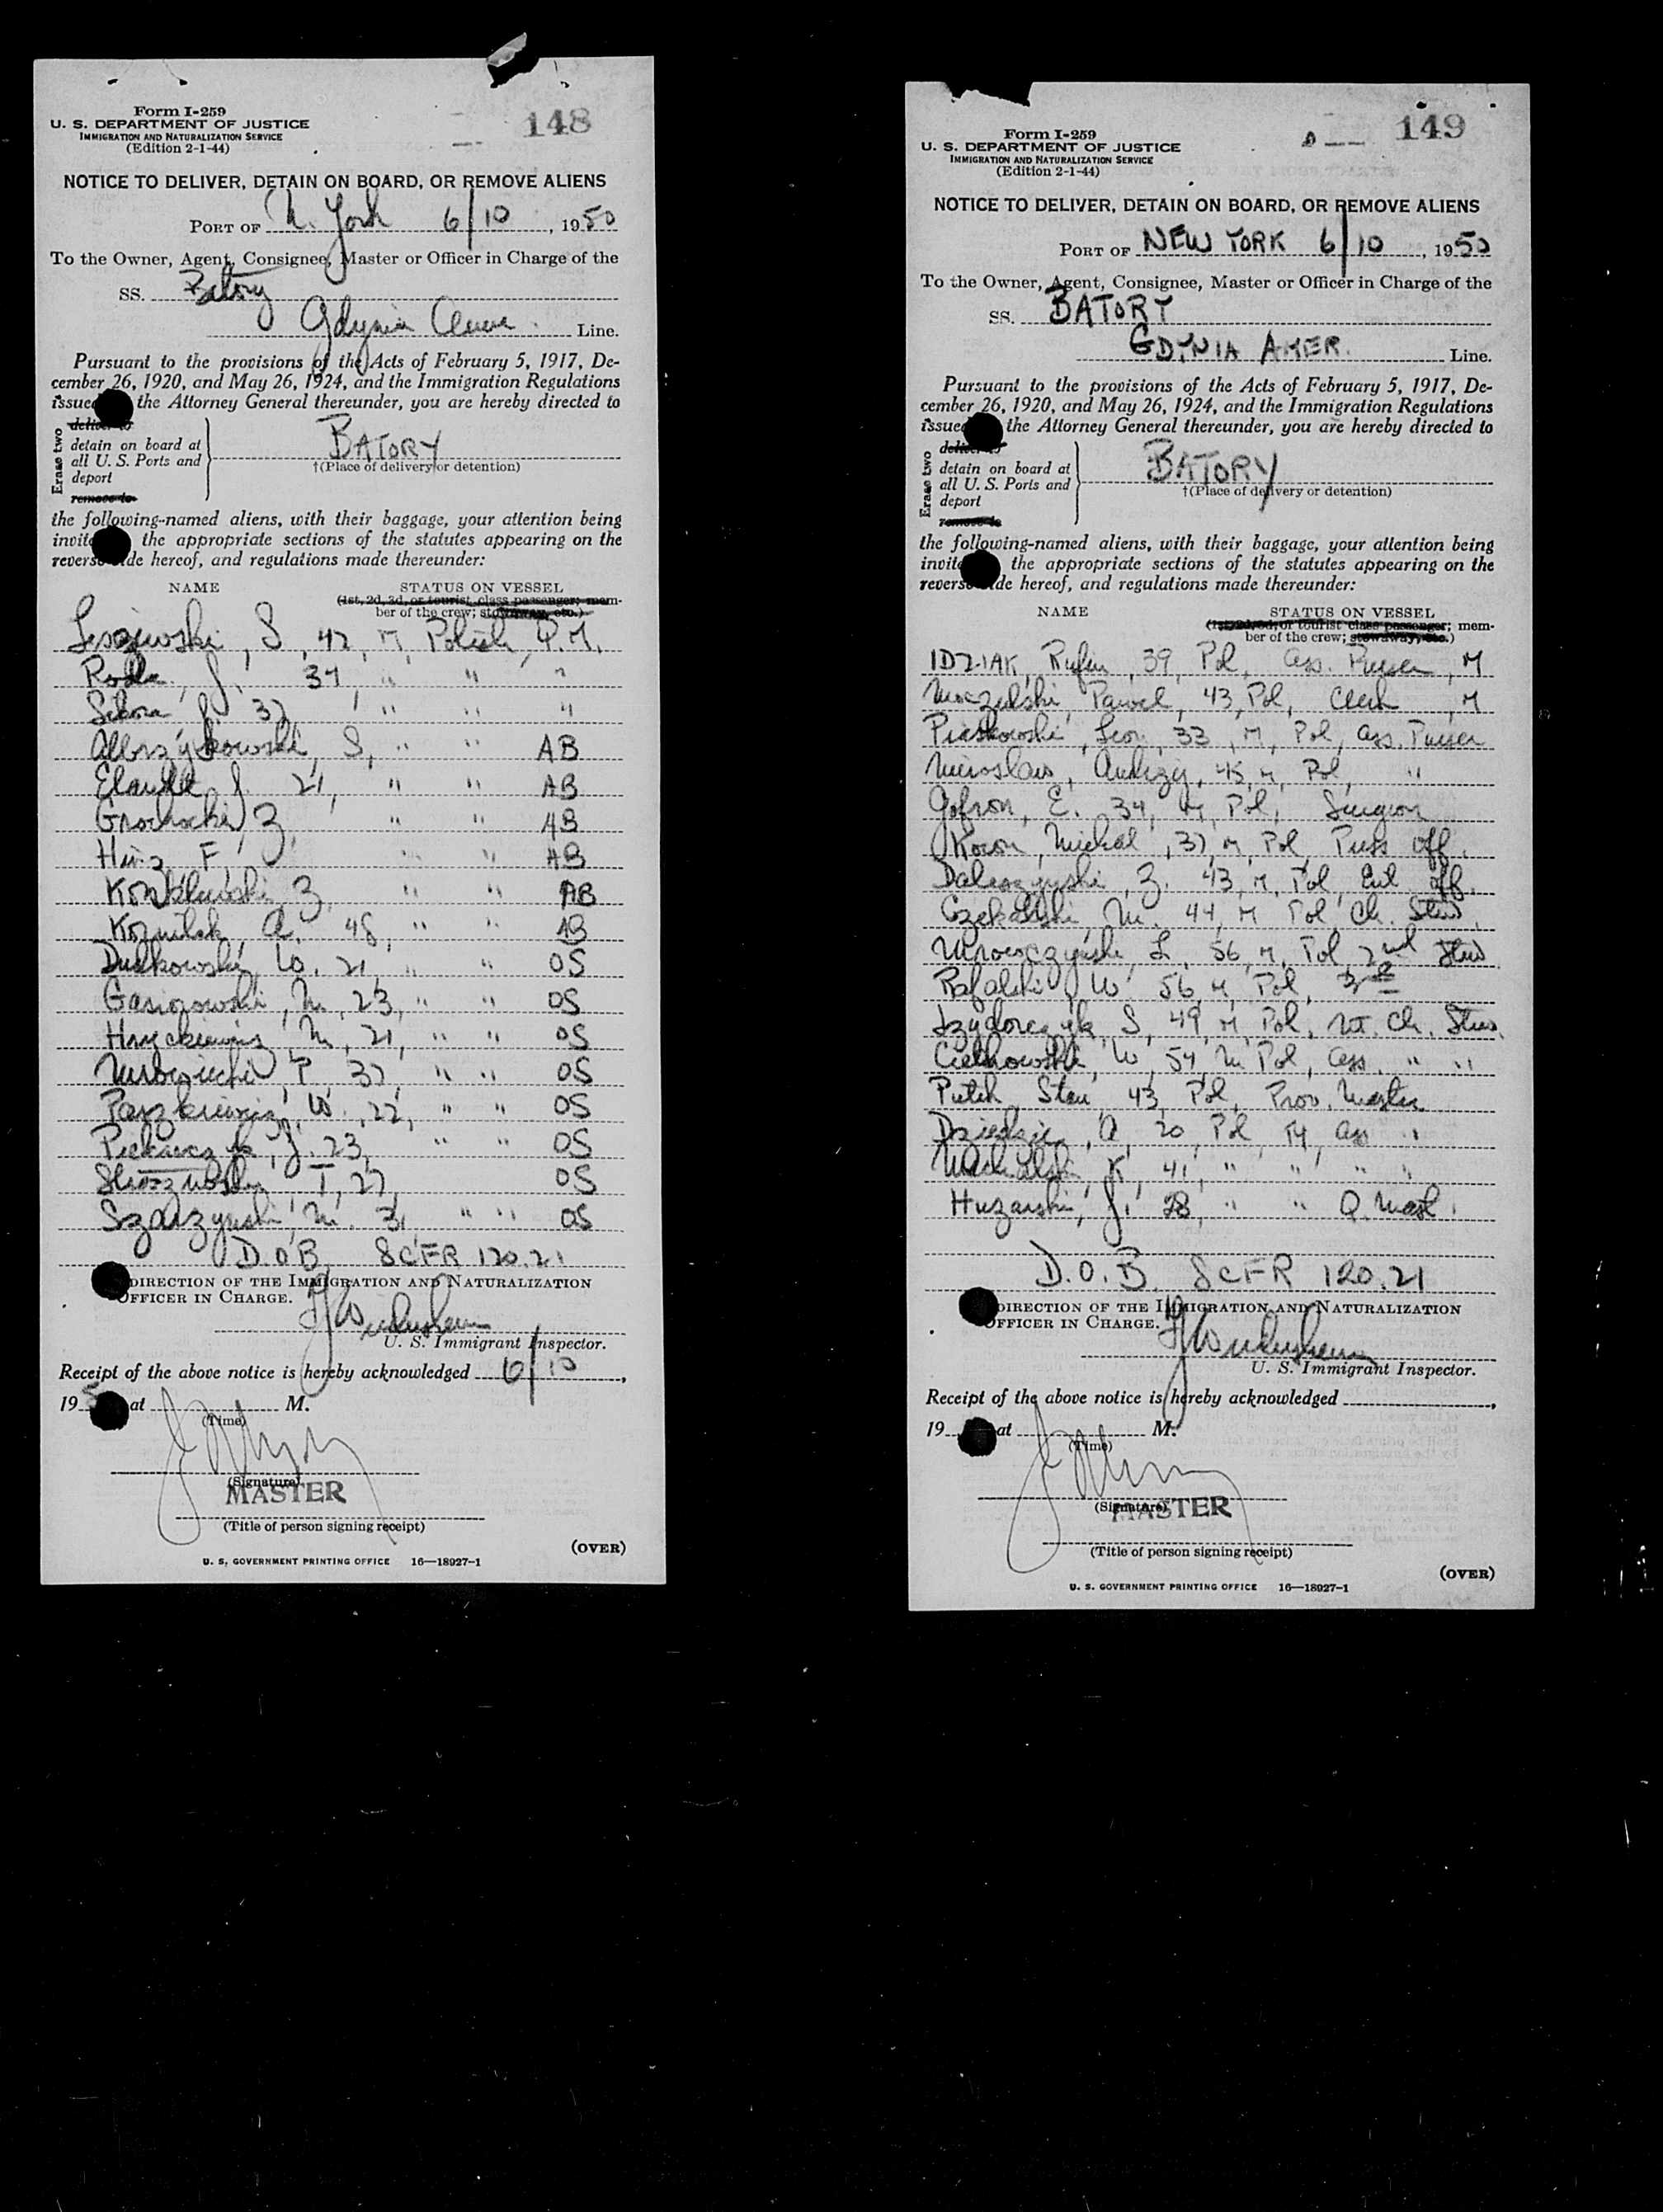 148
Form I-259
U. S. DEPARTMENT OF JUSTICE
IMMIGRATION AND NATURALIZATION SERVICE
(Edition 2-1-44)
NOTICE TO DELIVER, DETAIN ON BOARD, OR REMOVE ALIENS
PORT OF N. York 6/10, 1950
To the Owner, Agent, Consignee, Master or Officer in Charge of the
SS. Batory
Gdynia Line.
Pursuant to the provisions of the Acts of February 5, 1917, De-
cember 26, 1920, and May 26, 1924, and the Immigration Regulations
issued the Attorney General thereunder, you are hereby directed to
Erase two
deliver to
detain on board at
all U. S. Ports and
deport
remove to
BATORY
†(Place of delivery or detention)
the following-named aliens, with their baggage, your attention being
the appropriate sections of the statutes appearing on the
hereof, and regulations made thereunder:
NAME STATUS ON VESSEL
(1st, 2d, 3d, or tourist class passenger; mem-
ber of the crew; stowaway, etc.)
S, 42, M Polish, Q.M.
J. 34 " " "
Sikora, J. 37, " " "
S, " " AB
J. 21, " " AB
Grochocki Z, " " AB
F, " " AB
Z, " " AB
A. 48, " " AB
W. 21, " " OS
Gasiorowski, M, 23, " " OS
M, 21, " " OS
P, 37, " " OS
Paszkiewicz, W., 22, " " OS
J. 23, " " OS
T, 27, OS
M. " " OS
D.O.B. 8CFR 120.21
DIRECTION OF THE IMMIGRATION AND NATURALIZATION
OFFICER IN CHARGE.
U. S. Immigrant Inspector.
Receipt of the above notice is hereby acknowledged 6/10,
195 at M.
(Time)
(Signature)
MASTER
(Title of person signing receipt)
(OVER)
U. S. GOVERNMENT PRINTING OFFICE 16—18927-1
149
Form I-259
U. S. DEPARTMENT OF JUSTICE
IMMIGRATION AND NATURALIZATION SERVICE
(Edition 2-1-44)
NOTICE TO DELIVER, DETAIN ON BOARD, OR REMOVE ALIENS
PORT OF NEW YORK 6/10, 1950
To the Owner, Agent, Consignee, Master or Officer in Charge of the
SS. BATORY
GDYNIA AMER. Line.
Pursuant to the provisions of the Acts of February 5, 1917, De-
cember 26, 1920, and May 26, 1924, and the Immigration Regulations
issued the Attorney General thereunder, you are hereby directed to
Erase two
deliver to
detain on board at
all U. S. Ports and
deport
remove to
BATORY
†(Place of delivery or detention)
the following-named aliens, with their baggage, your attention being
the appropriate sections of the statutes appearing on the
hereof, and regulations made thereunder:
NAME STATUS ON VESSEL
(1st, 2d, 3d, or tourist class passenger; mem-
ber of the crew; stowaway, etc.)
IDZIAK, Rufin, 39, Pol, Ass. Purser, M
Pawel, 43, Pol, Clerk, M
Piaskowski, Leon, 33, M, Pol, Ass. Purser
Miroslaw, Andrzej, 45, M, Pol, "
Gofron, E. 34, M, Pol, Surgeon
Kocon, Michal, 37, M, Pol, Off.
Z. 43, M, Pol, Off.
M. 44, M Pol, Ch. Stew.
L, 56, M, Pol, 2nd Stew.
Rafalski, W. 56, M, Pol, 3rd
Izydorczyk, S, 49, M, Pol, Ch. Stew.
W, 54, M, Pol, Ass. " "
Stan, 43, Pol, Prov. Master
A, 20, Pol, M, Ass "
K, 41, " " " "
Huzarski, J. 28, " " Q. Mast.
D.O.B. 8CFR 120.21
DIRECTION OF THE IMMIGRATION AND NATURALIZATION
OFFICER IN CHARGE.
U. S. Immigrant Inspector.
Receipt of the above notice is hereby acknowledged ,
19 at M.
(Time)
(Signature)
MASTER
(Title of person signing receipt)
(OVER)
U. S. GOVERNMENT PRINTING OFFICE 16—18927-1